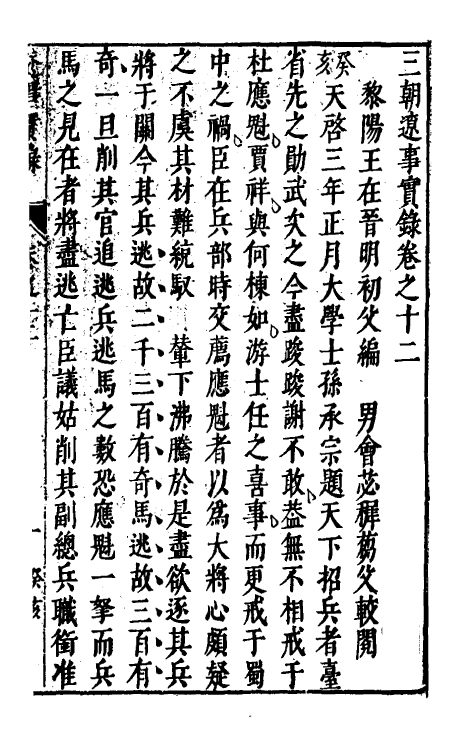 三朝遼事實錄卷之十二
黎陽王在晉明初父編 男會苾穉芴父較閱
癸亥天啓三年正月大學士孫承宗題天下招兵者臺
省先之勛武次之今盡踆踆謝不敢葢無不相戒于
杜應魁賈祥與何棟如游士任之喜事而更戒于蜀
中之禍臣在兵部時交薦應魁者以爲大將心頗疑
之不虞其材難統馭 輦下沸騰於是盡欲逐其兵
將于關今其兵逃故二千三百有奇馬逃故三百有
奇一旦削其官追逃兵逃馬之數恐應魁一拏而兵
馬之見在者將盡逃亡臣議姑削其副總兵職銜准